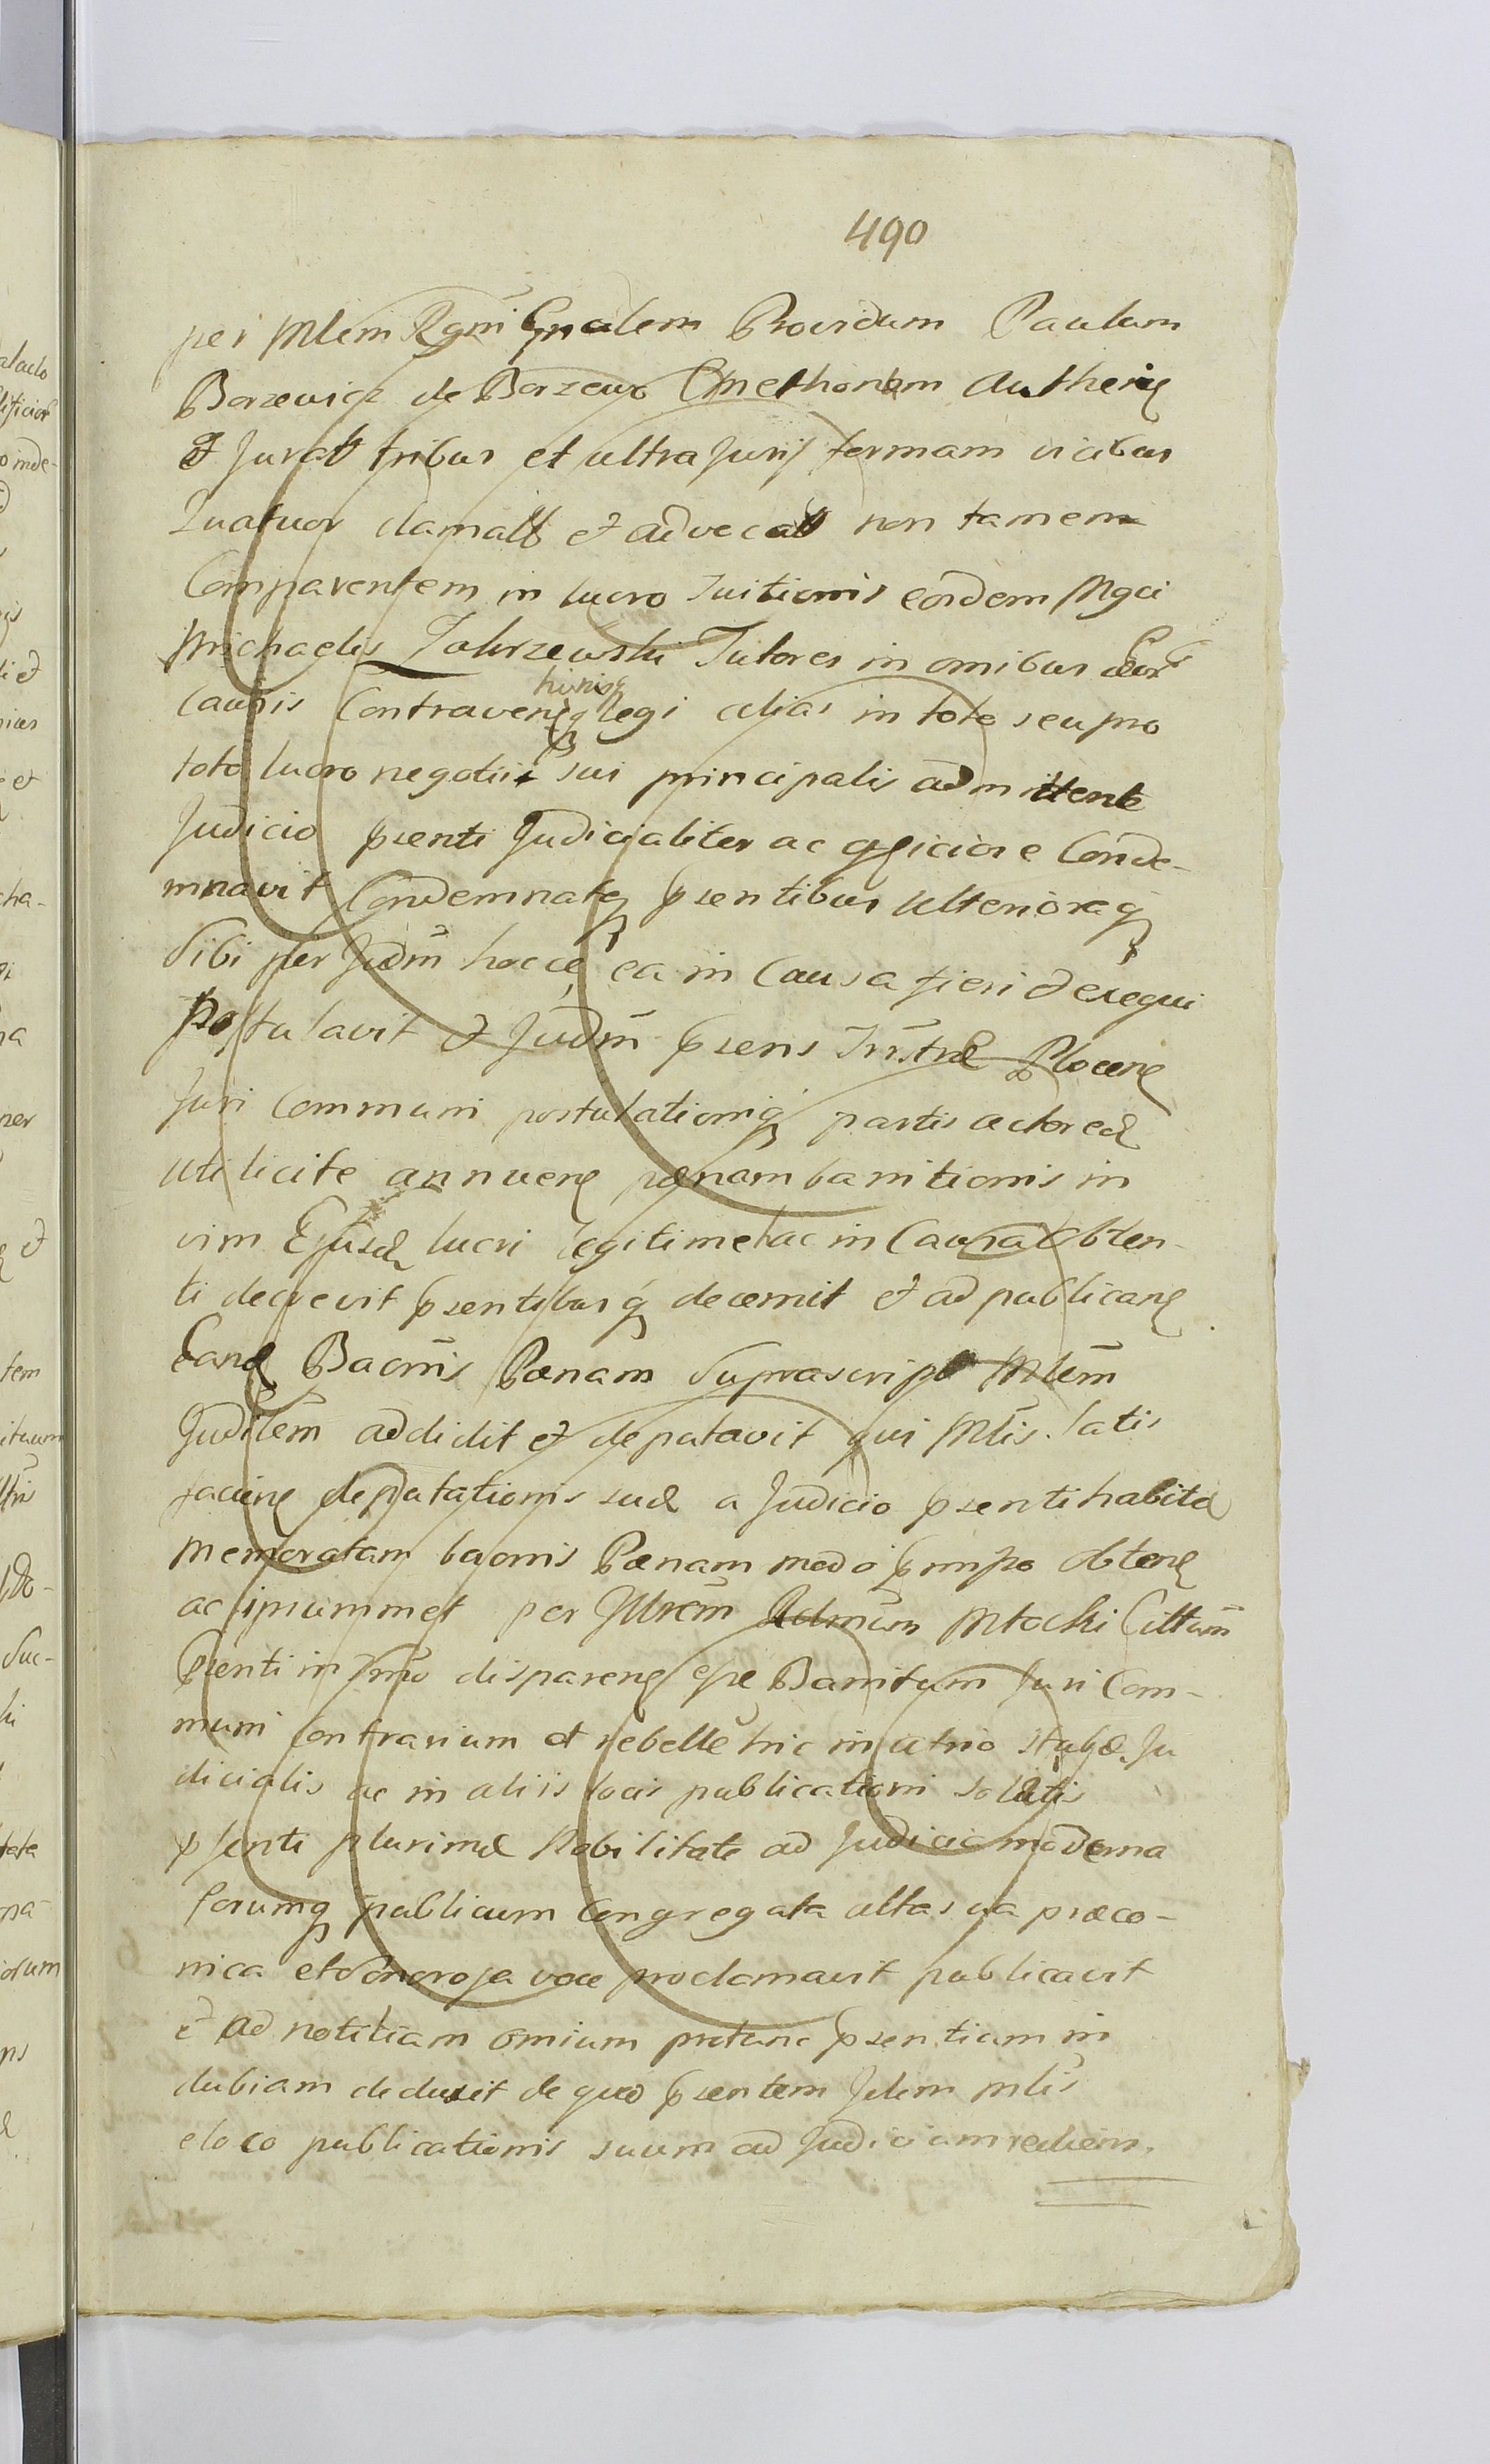 490
per Mlem Rgni Gnalem Providum Paulum
Borzewicz de Borzewo Cmethonem Authen
et Jurat tribus et ultra Juris formam vicibus
Quatuor clamatt et advocatt non tamen
Comparentem in lucro Tuitionis eordem Mgci
Michaelis Zakrzewski Tutores in omnibus
causis Contraven legi alias in toto seu pro
toto lucro negotii sui principalis admittente
Judicio psenti Judicialiter ac officiose Conde-
mnavit Condemnatq psentibus ulterioraq
Sibi per Judm hocce ea in Causa fieri et exequi
Postulavit et Judm psens Plocen
Juri Communi postulationiq partis actoreæ
uti licite annuen pænam banitionis in
vim Ejusd lucri legitime ac in Causa obten-
ti decrevit psentibusq decernit et ad publican
Eand Baonis Pænam Suprascript Mlem
Judilem addidit et deputavit qui Mlis. Satis
facien deputationis suæ a Judicio psenti habitæ
Memoratam baonis Pænam modo pmisso obten
ac ipsummet per Mtocki Cittum
Psenti in Tmo disparen esse Banitum Juri Com-
muni Contrarium et rebelle hic in atrio stubæ Ju
dicialis ac in aliis locis publicationi solitis
psenti plurimæ Nobilitate ad Judicia moderna
forumq publicum Congregata alta sua præco-
nica et Sonorosa voce proclamavit publicavit
et ad notitiam omium protunc psentium in
dubiam deduxit de quo psentem fecit Mlis
e loco publicationis suum ad Judicium